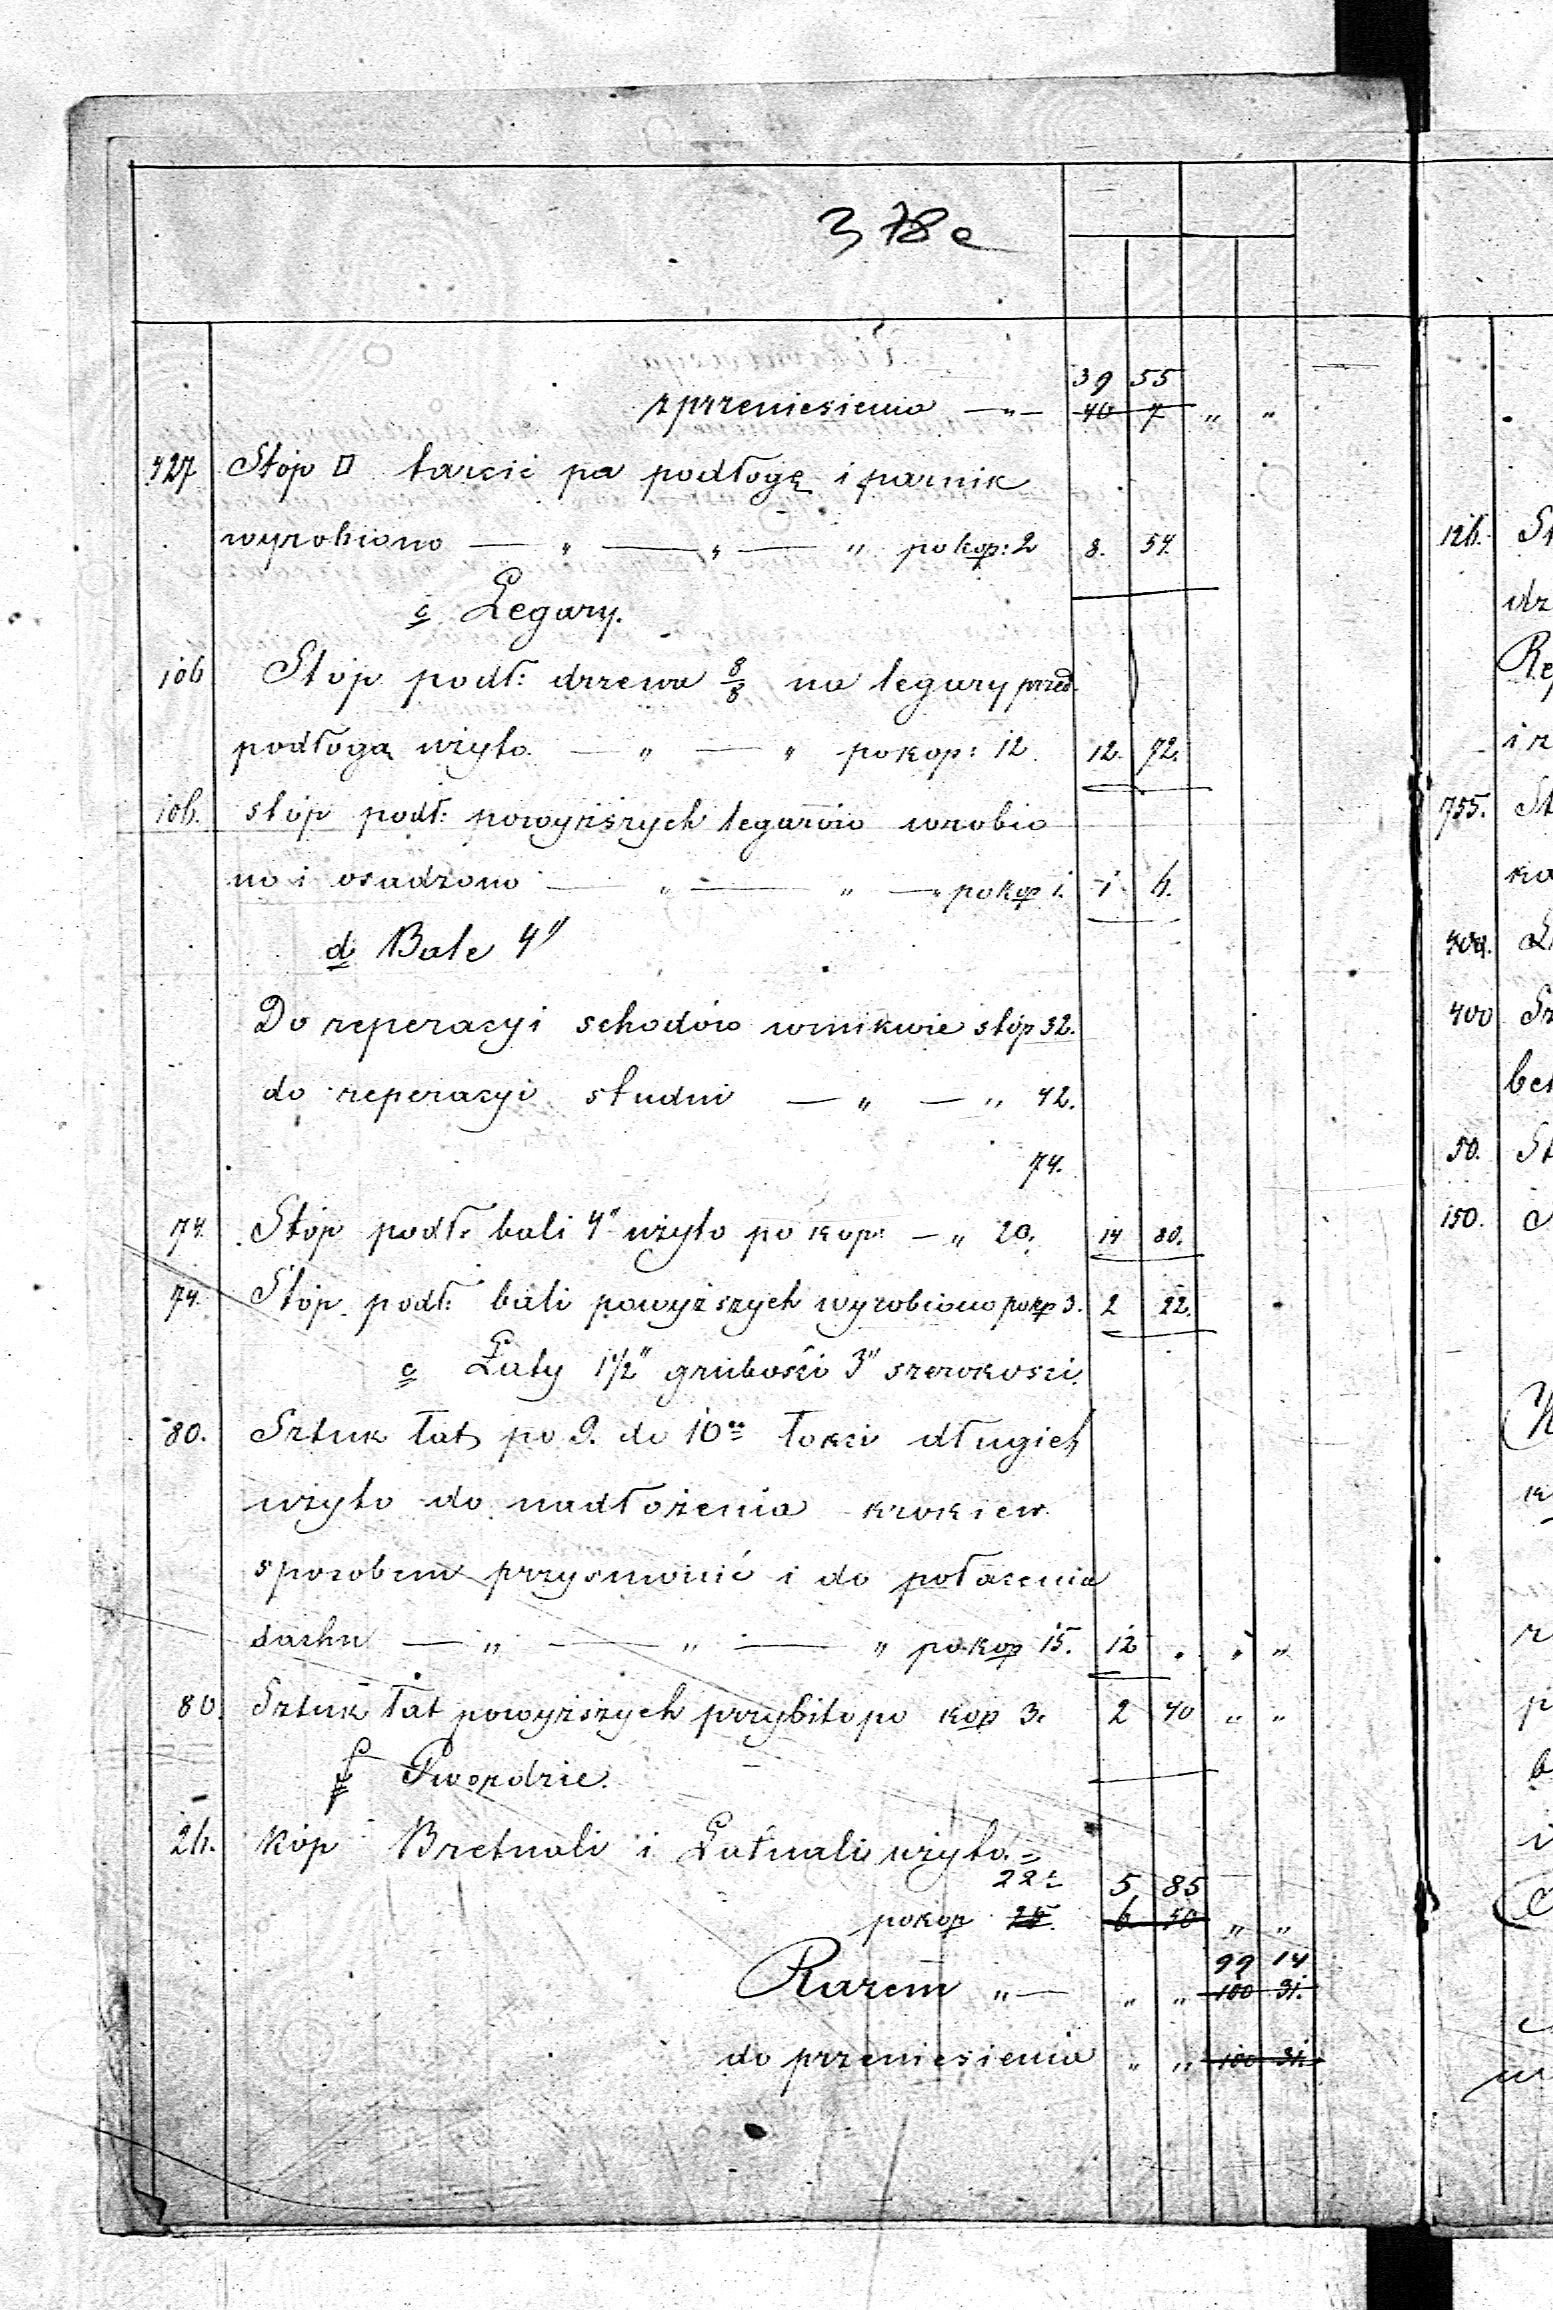 378e
39 55
z przeniesienia — „ — 40 7 „ „
427 Stóp □ tarcic na podłogę i parnik
wyrobiono — „ — „ — „ po kop: 2 8. 54.
c Legary.
106 Stóp podł: drzewa 8/8 na legary pod
podłogą użyto — „ — „ po kop: 12 12. 72.
106. stóp podł: powyższych legarów wrobio
no i osadzono — „ — „ — „ po kop 1. 1 6.
d Bale 4"
Do reperacyi schodów stóp 32.
do reperacyi studni — „ — „ 42.
74.
74. Stóp podł: bali 4" użyto po kop: — „ 20. 14 80.
74. Stóp podł: bali powyższych wyrobiono po kop 3. 2 22.
e Łaty 1 1/2" grubości 3" szerokości.
80. Sztuk łat po 9. do 10 łokci długich
użyto do nadłożenia krokiew
sposobem i do połacenia
dachu — „ — „ — „ po kop 15. 12 „ „ „
80 Sztuk łat powyższych przybito po kop 3. 2 40 „ „
f Gwozdzie.
26. Kóp Bretnali i Łatnali użyto =
22 5 85
po kop 25. 6 50 „ „
99 14.
Razem „ — „ „ 100 31.
do przeniesienia „ „ 100 31.
126. St
dz
Re
i r
755. St
ko
400. Ł
400 Sz
bet
50. St
150.